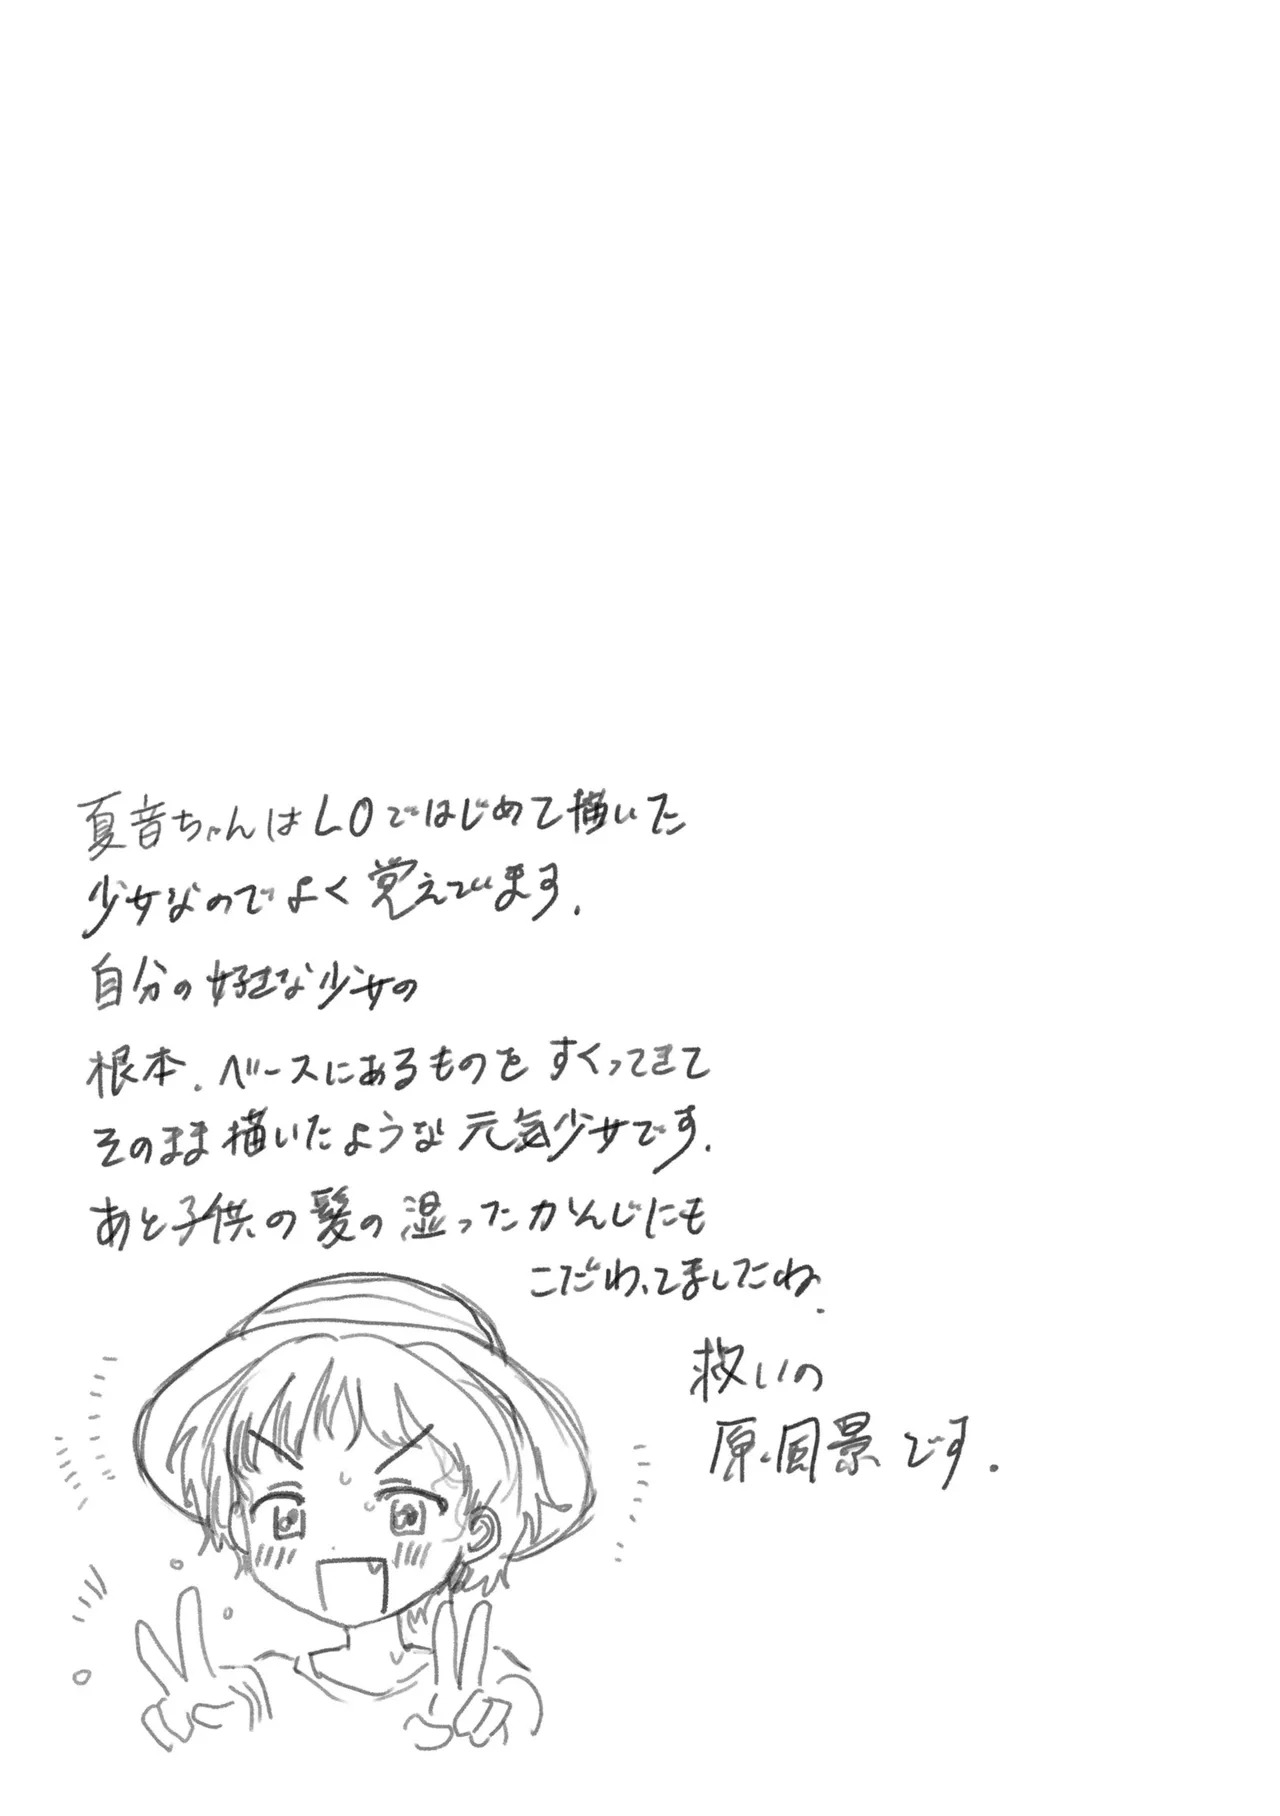 夏音ちゃんはLOではじめて描いた
少女なのでよく覚えています.
自分の好きな少女の
根本.ベースにあるものをすくってきて
そのまま描いたような元気少女です.
あと子供の髪の湿ったかんじにも
こだわってましたね.
救いの
原風景です.